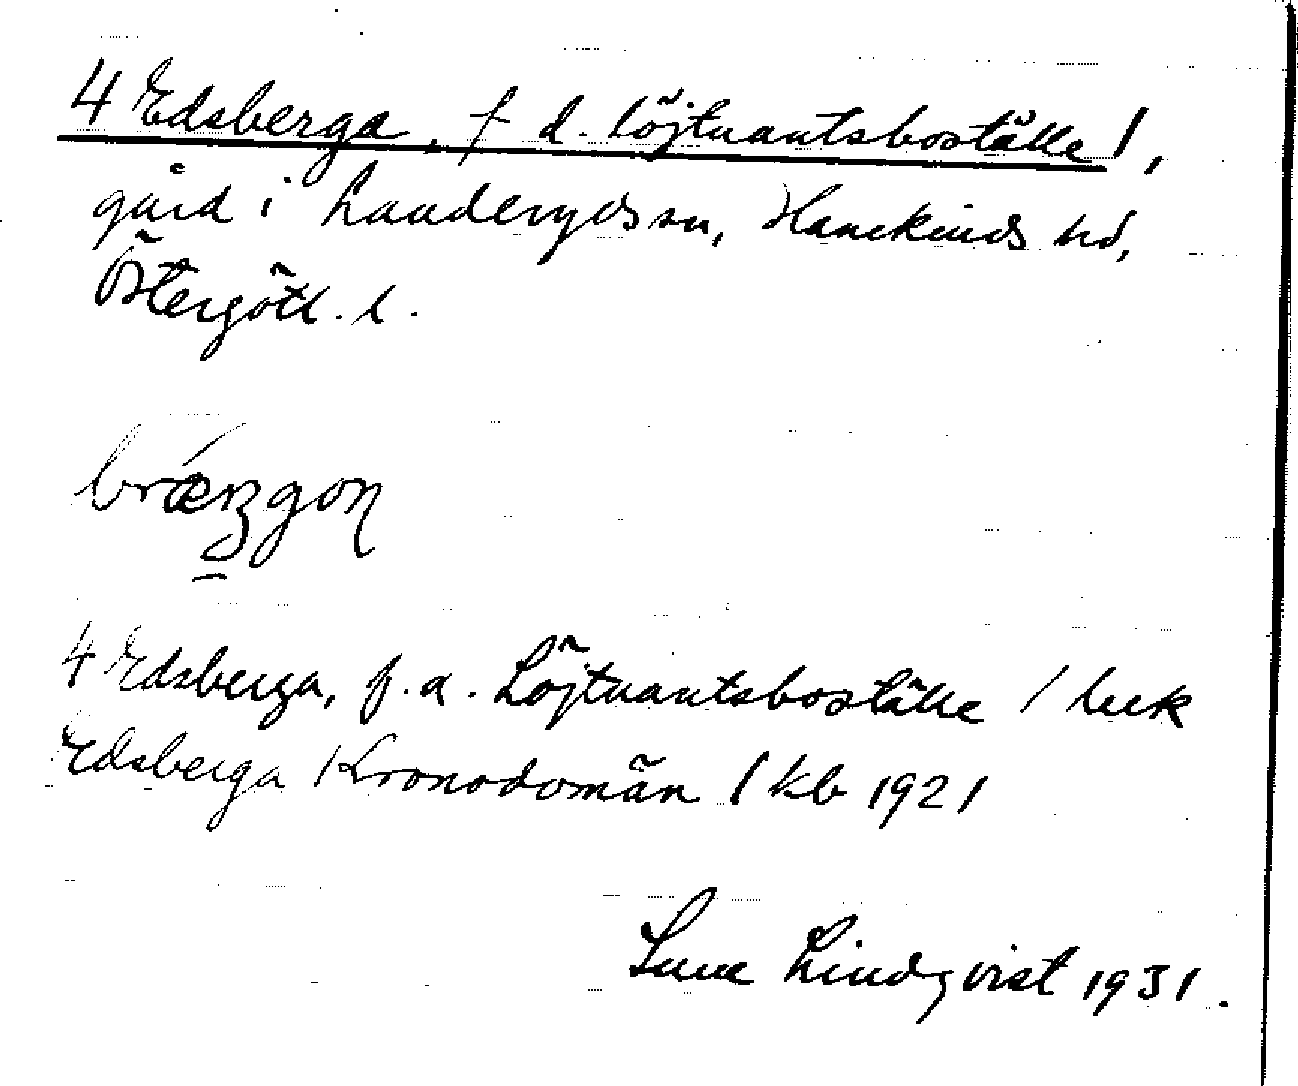 4 Edsberga, f d. löjtnantsboställe /,
gård i Landeryds sn, Hanekinds hd,
Östergötl. l.
4 Edsberga, f. d. Löjtnantsboställe /
Edsberga Kronodomän / kb 1921
Sune Lindqvist 1931.